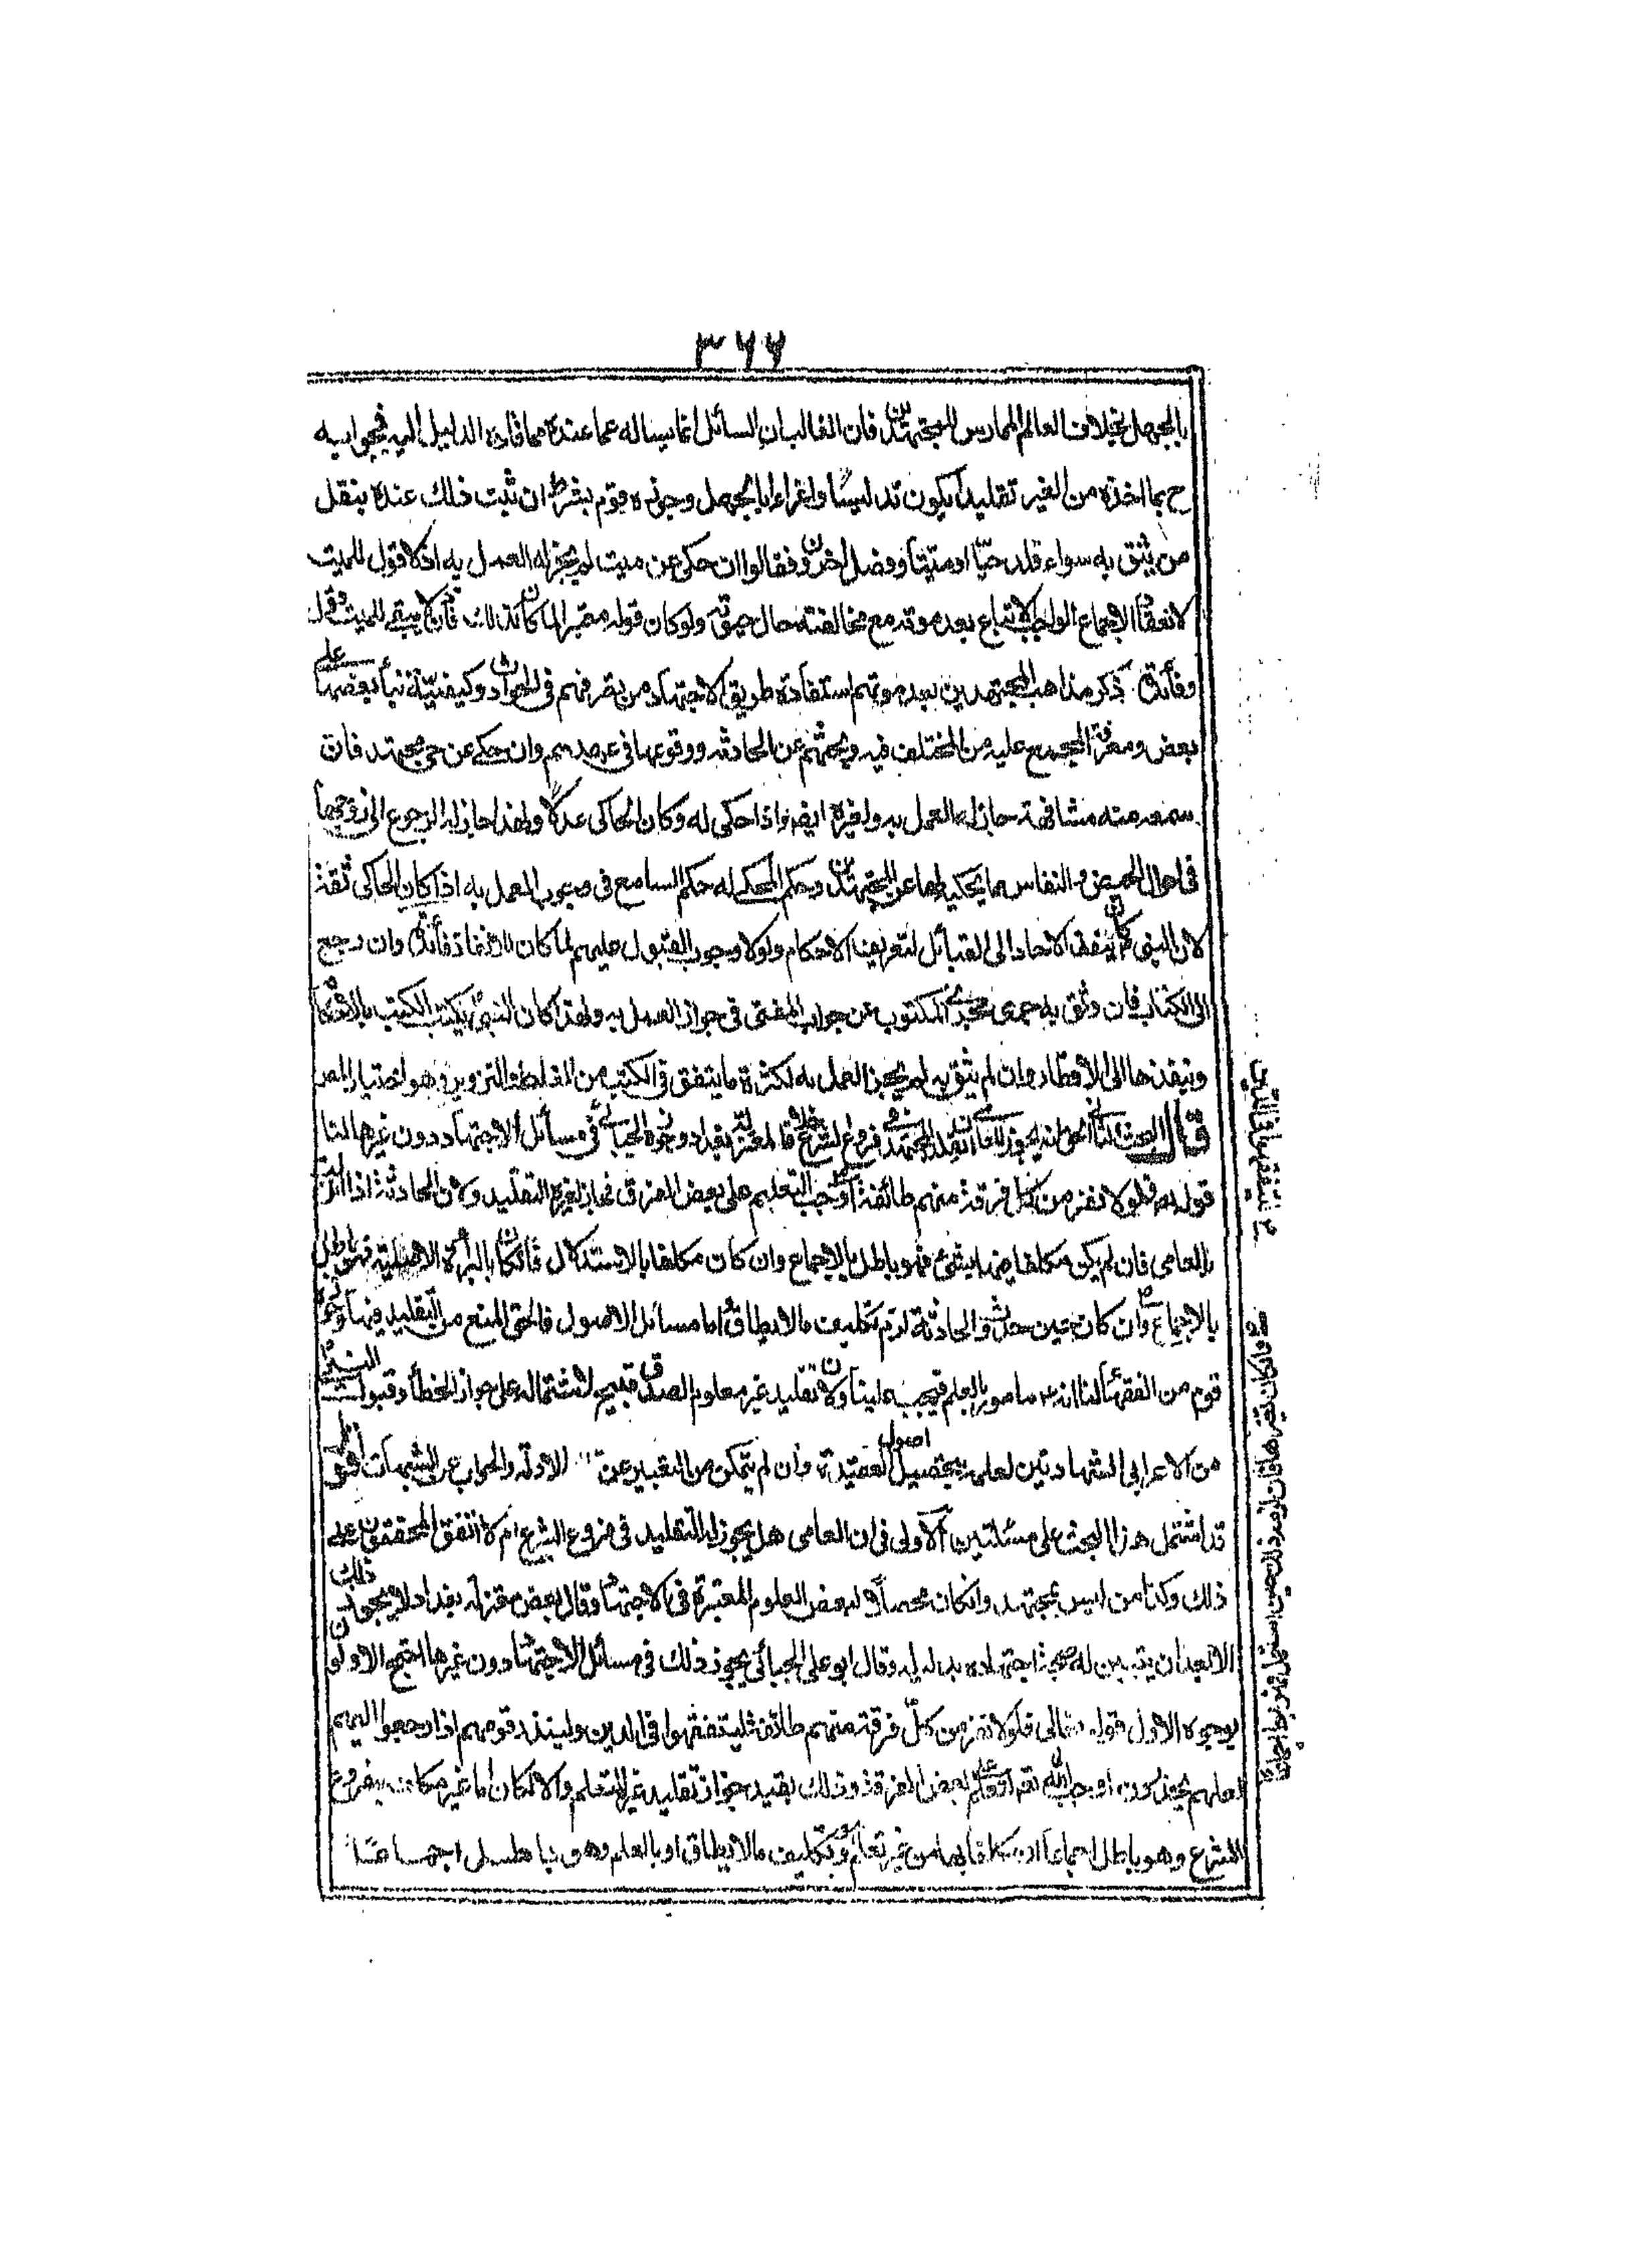 ٣٦٦
بالجهل بخلاف العالم الممارس للمجتهدين فان الغالب ان السائل انما يسأله عما عنده مما قاده الدليل اليه فجوابه
ح بما اخذه من الغير تقليدا يكون تدليسا واغراء بالجهل وجوزه قوم بشرط ان ثبت ذلك عنده بنقل
من يثق به سواء قلد حيّا او ميتا وفصل اخرون فقالوا ان حكى عن ميت لم يجز له العمل به اذ لا قول للميت
لانعقاد الاجماع الواجب الاتباع بعد موته مع مخالفته حال حيوته ولو كان قوله معتبرا لما كان كذلك فاذن لا يبقى للميت قول
وفائدة ذكر مذاهب المجتهدين بعد موتهم استفادة طريق الاجتهاد من تصرفهم فى الحوادث وكيفيّة بناء بعضها على
بعض ومعرفة المجمع عليه من المختلف فيه وبحثهم عن الحادثه ووقوعها فى عصرهم وان حكى عن حى مجتهد فان
سمعه منه مشافهة جاز له العمل به ولغيره ايضا اذا حكى له وكان الحاكى عدلا ولهذا جاز للمرأة الرجوع الى زوجها
فى احوال الحيض والنفاس مما يحكيه لها عن المجتهدين وحكم المحكى له حكم السامع فى وجوب العمل به اذا كان الحاكى ثقة
لان النبى كان ينفذ الاحاد الى القبائل لتعريف الاحكام ولولا وجوب القبول عليهم لما كان للانفاذ فائدة وان رجع
الى الكتاب فان وثق به جرى مجرى المكتوب عن جواب المفتى فى جواز العمل به ولهذا كان النبى يكتب الكتب بالاحكام
وينفذها الى الاقطار وان لم يثق به لم يجز العمل به لكثرة ما يتفق فى الكتب من الغلط والتزوير وهو اختيار المص
قال البحث الثانى الحق انه يجوز للعامى ان يقلد المجتهد فى فروع الشرع خلافا لمعتزلة بغداد وجوزه الجبائى فى مسائل الاجتهاد دون غيرها لنا
قوله تع فلولا نفر من كل فرقة منهم طائفة اوجب التعلم على بعض الفرق فجاز لغيرهم التقليد ولان الحادثة اذا نزلت
بالعامى فان لم يكن مكلفا فيها بشئ فهو باطل بالاجماع وان كان مكلفا بالاستدلال فان كان بالبرائة الاصلية فهو باطل
بالاجماع وان كان عين حدوث الحادثة لزم تكليف ما لا يطاق واما مسائل الاصول فالحق المنع من التقليد فيها وجوزه
قوم من الفقهاء لنا انه ص مأمور بالعلم فيجب علينا ولان تقليد غير معلوم الصدق قبيح لاشتماله على جواز الخطأ وقبول النبى
من الاعرابى الشهادتين لعلمه بتحصيل اصول العقيدة وان لم يتمكن من التعبير عن الادلة والجواب عن الشبهات اقول
قد اشتمل هذا البحث على مسئلتين الاولى فى ان العامى هل يجوز له التقليد فى فروع الشرع ام لا اتفق المحققون على
ذلك وكذا من ليس بمجتهد وان كان محصلا لبعض العلوم المعتبرة فى الاجتهاد وقال بعض معتزلة بغداد لا يجوز ذلك
الا بعد ان يتبين له صحة اجتهاده بدليله وقال ابو على الجبائى يجوز ذلك فى مسائل الاجتهاد دون غيرها احتج الاولون
بوجوه الاول قوله تعالى فلولا نفر من كلّ فرقة منهم طائفة ليتفقهوا فى الدين ولينذروا قومهم اذا رجعوا اليهم
لعلهم يحذرون اوجب الله تعالى التعلم لبعض الفرقة وذلك يفيد جواز تقليد غير المتعلم والا لكان اما غير مكلف بفروع
الشرع وهو باطل اجماعا او مكلفا بها من غير تعلم وهو تكليف ما لا يطاق او بالعلم وهو باطل اجماعا